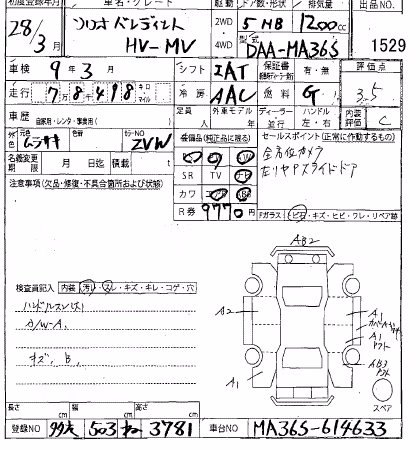 初度登録年月 車名・グレード 駆動 ドア数・形状 排気量 出品NO.
28/3月 ソリオ バンディット 2WD 5 HB 1200cc
HV-MV 4WD 型式 DAA-MA36S 1529
車検 9年 3月 シフト IAT 保証書 有・無 評価点
走行 7万8498 キロ マイル 冷房 AAC 燃料 G 3.5
車歴 自家用・レンタ・事業用 定員 人 外車モデル 年 ディーラー 並行 ハンドル 左・右 内装評価 C
元色 ムラサキ カラーNO ZVW 装備品(純正品に限る) セールスポイント(正常に作動するもの)
名義変更期限 月 日迄 積載 t 全方位カメラ
SR TV ナビ 左リヤPスライドドア
注意事項(欠品・修復・不具合箇所および状態)
カワ エアB ABS
R券 9770 Fガラス:トビ石・キズ・ヒビ・ワレ・リペア跡
AB2
検査員記入 内装 汚れ・スレ・キズ・キレ・コゲ・穴
ハンドルスレ(大)
A2 A1
A/W-A.
A1
キズ、B.
AB3
A1
スペア
長さ cm 幅 cm 高さ cm
登録NO 503 3781 車台NO MA36S-614633